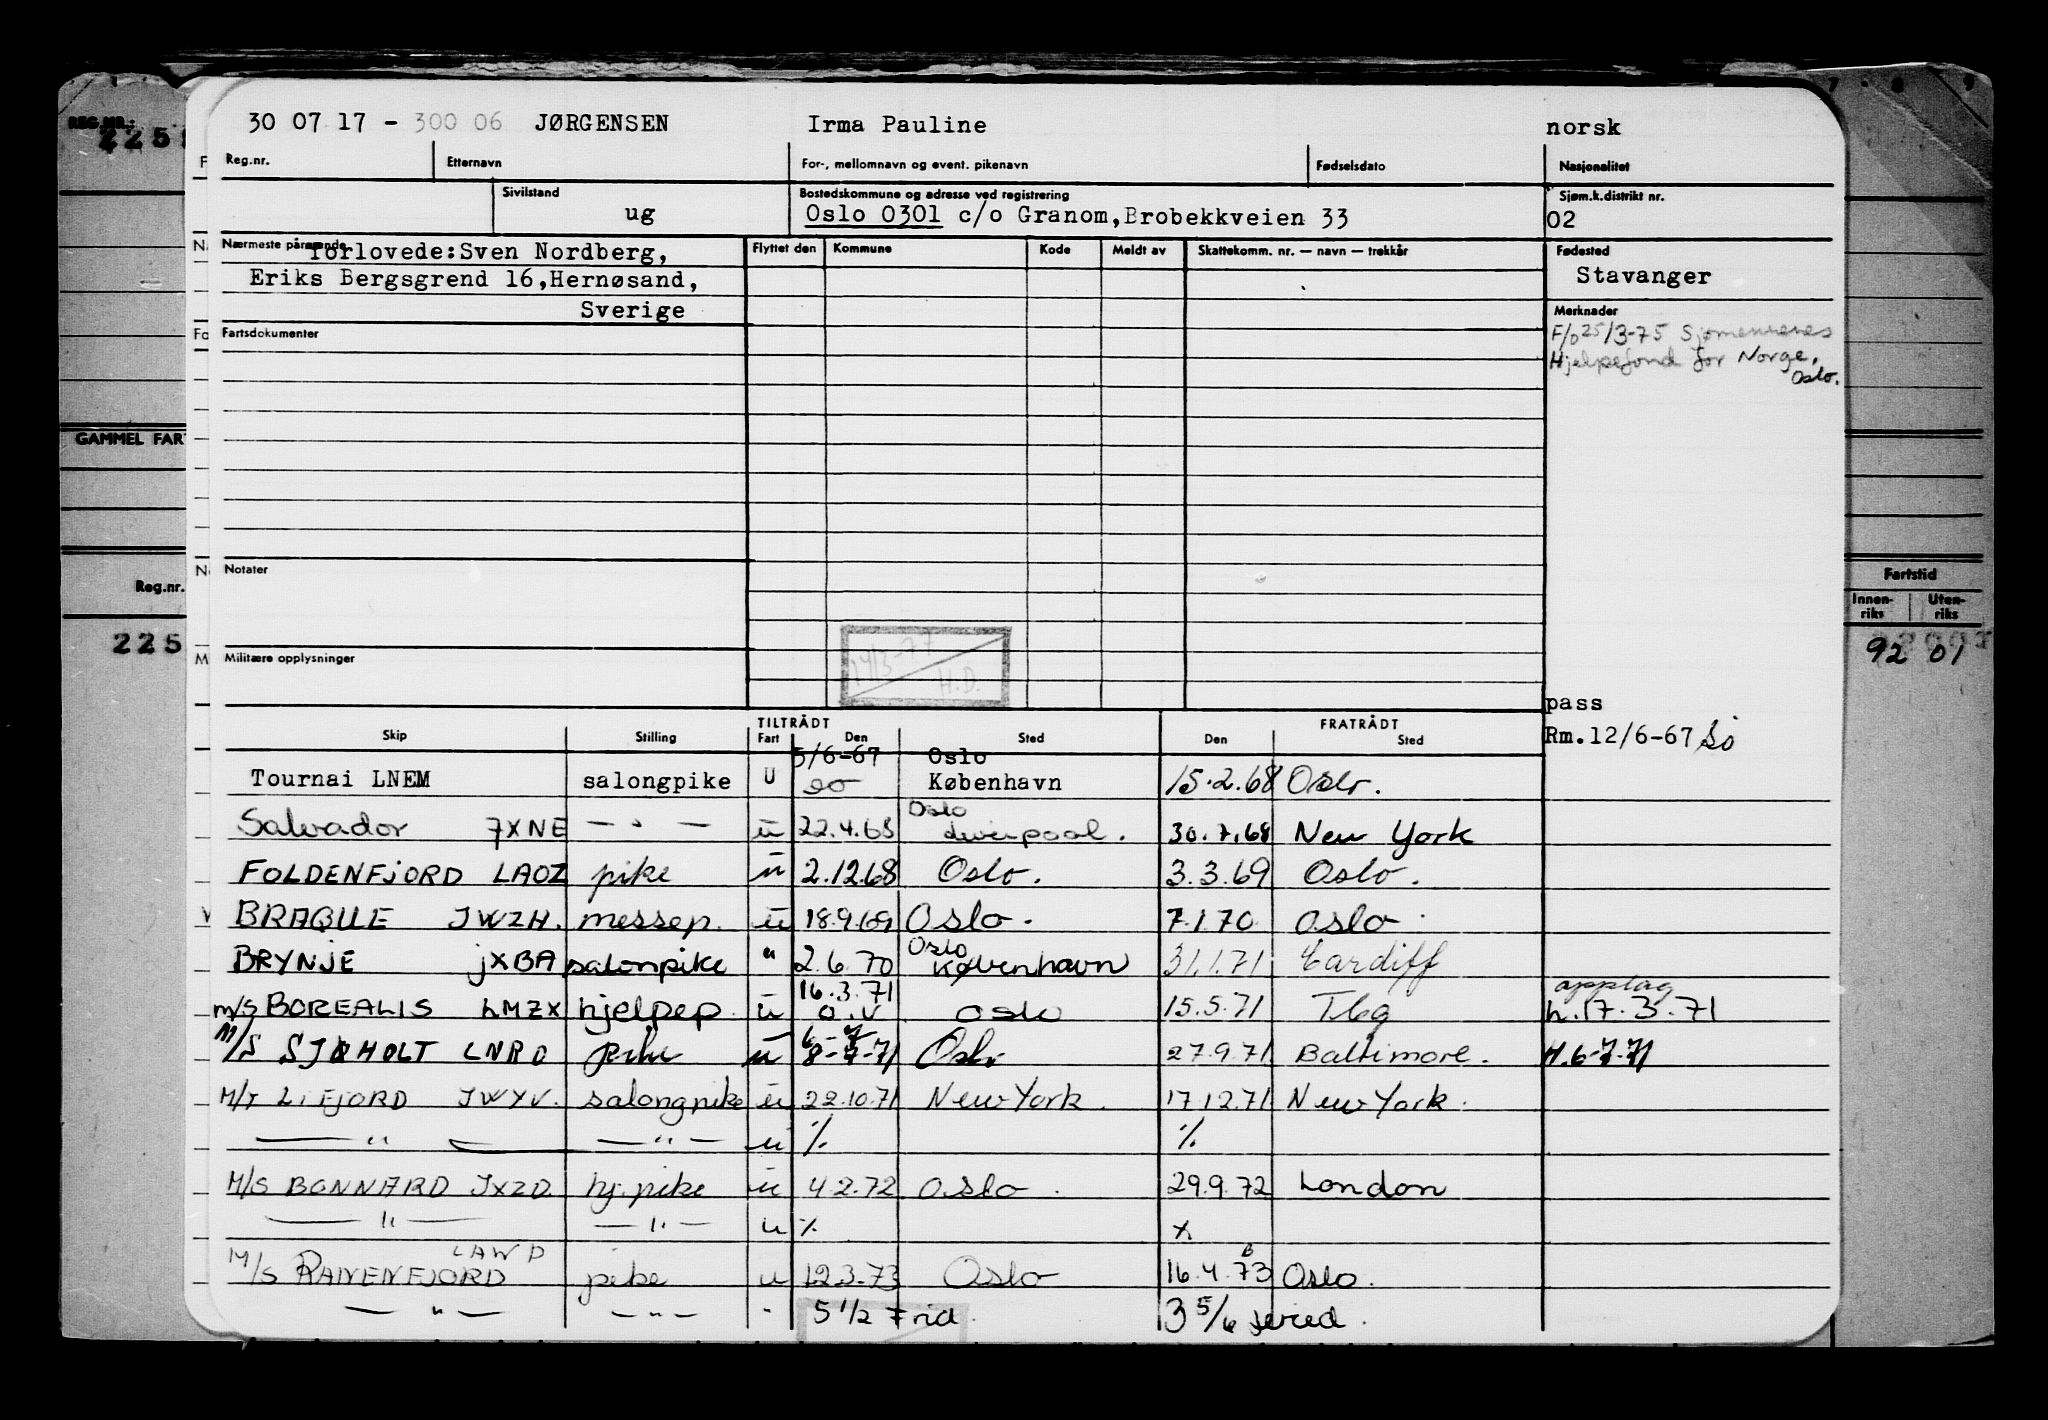 REG.NR.:
225
30 07 17 - 300 06 JØRGENSEN Irma Pauline norsk
Reg.nr. Etternavn For-, mellomnavn og event. pikenavn Fødselsdato Nasjonalitet
Sivilstand Bostedskommune og adresse ved registrering Sjøm.k.distrikt nr.
ug Oslo 0301 c/o Granom,Brobekkveien 33 02
Nærmeste pårørende Flyttet den Kommune Kode Meldt av Skattekomm. nr. — navn — trekkår Fødested
forlovede:Sven Nordberg,
Eriks Bergsgrend 16,Hernøsand, Stavanger
Sverige Merknader
Fartsdokumenter F/o 25/3-75 Sjømennenes
Hjelpefond for Norge,
Oslo.
GAMMEL FAR
Notater
Reg.nr. Fartstid
Innen-riks Uten-riks
225 92 01
Militære opplysninger 19/3-77
H.D.
pass
TILTRÅDT FRATRÅDT
Skip Stilling Fart Den Sted Den Sted Rm.12/6-67
5/6-67 Oslo
Tournai LNEM salongpike U do København 15.2.68 Oslo.
Salvador JXNE — " — u 22.4.68 Oslo Liverpool. 30.7.68 New York
FOLDENFJORD LAOZ pike u 2.12.68 Oslo. 3.3.69 Oslo.
BRAQUE JWZH. messep. u 18.9.69 Oslo. 7.1.70 Oslo
BRYNJE JXBA salonpike " 2.6.70 Oslo København 31.1.71 Cardiff
16.3.71 opptag
m/s BOREALIS LMZX hjelpep. u o.v. Oslo 15.5.71 Tbg h.17.3.71
M/S SJØHOLT LNRD pike u 8-7-71 Oslo 27.9.71 Baltimore. H.6-7-71
M/T LIFJORD JWYV. salongpike u 22.10.71 New York. 17.12.71 New York.
— " — — " — u % %
M/S BONNARD JXZD hj.pike u 4.2.72 Oslo. 29.9.72 London
— " — — " — u % x
M/S RANENFJORD LAWD pike u 12.3.73 Oslo 16.4.73 Oslo.
— " — — " — " 5 1/2 Frid. 3 5/6